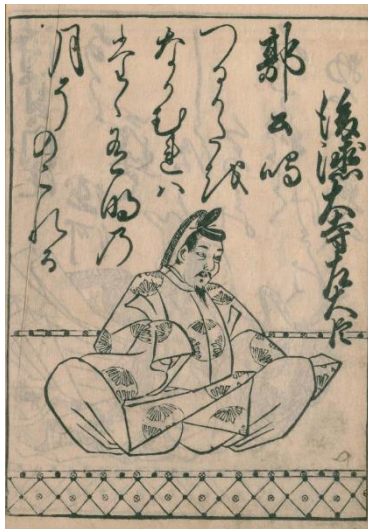 後徳大寺左大臣
郭公鳴
つるかたを
なかむれハ
たゝ有明乃
月そのこれる